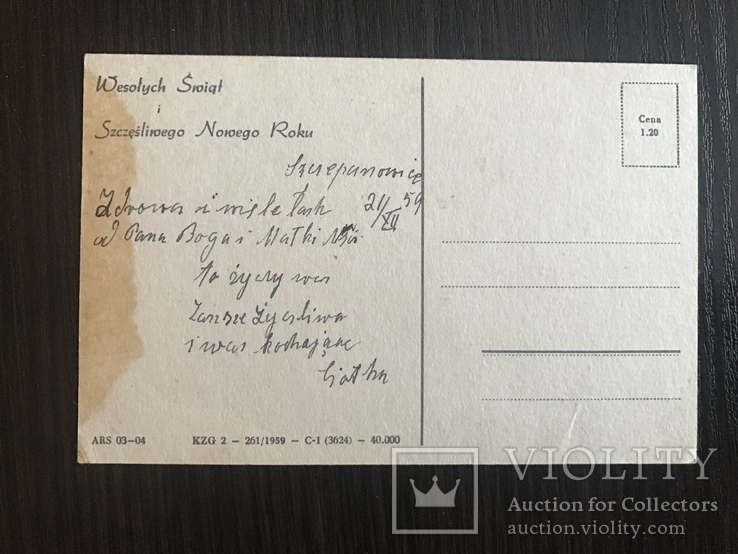 Wesołych Świąt
i
Szczęśliwego Nowego Roku
Szczepanowice
Zdrowia i wiele łask 21/XII 59
od Pana Boga i Matki
to życzy was
Zawsze Życzliwa
i was kochająca
Ciotka
Cena
1.20
ARS 03—04 KZG 2 — 261/1959 — C-1 (3624) — 40.000
VIOLITY
Auction for Collectors
auction.violity.com